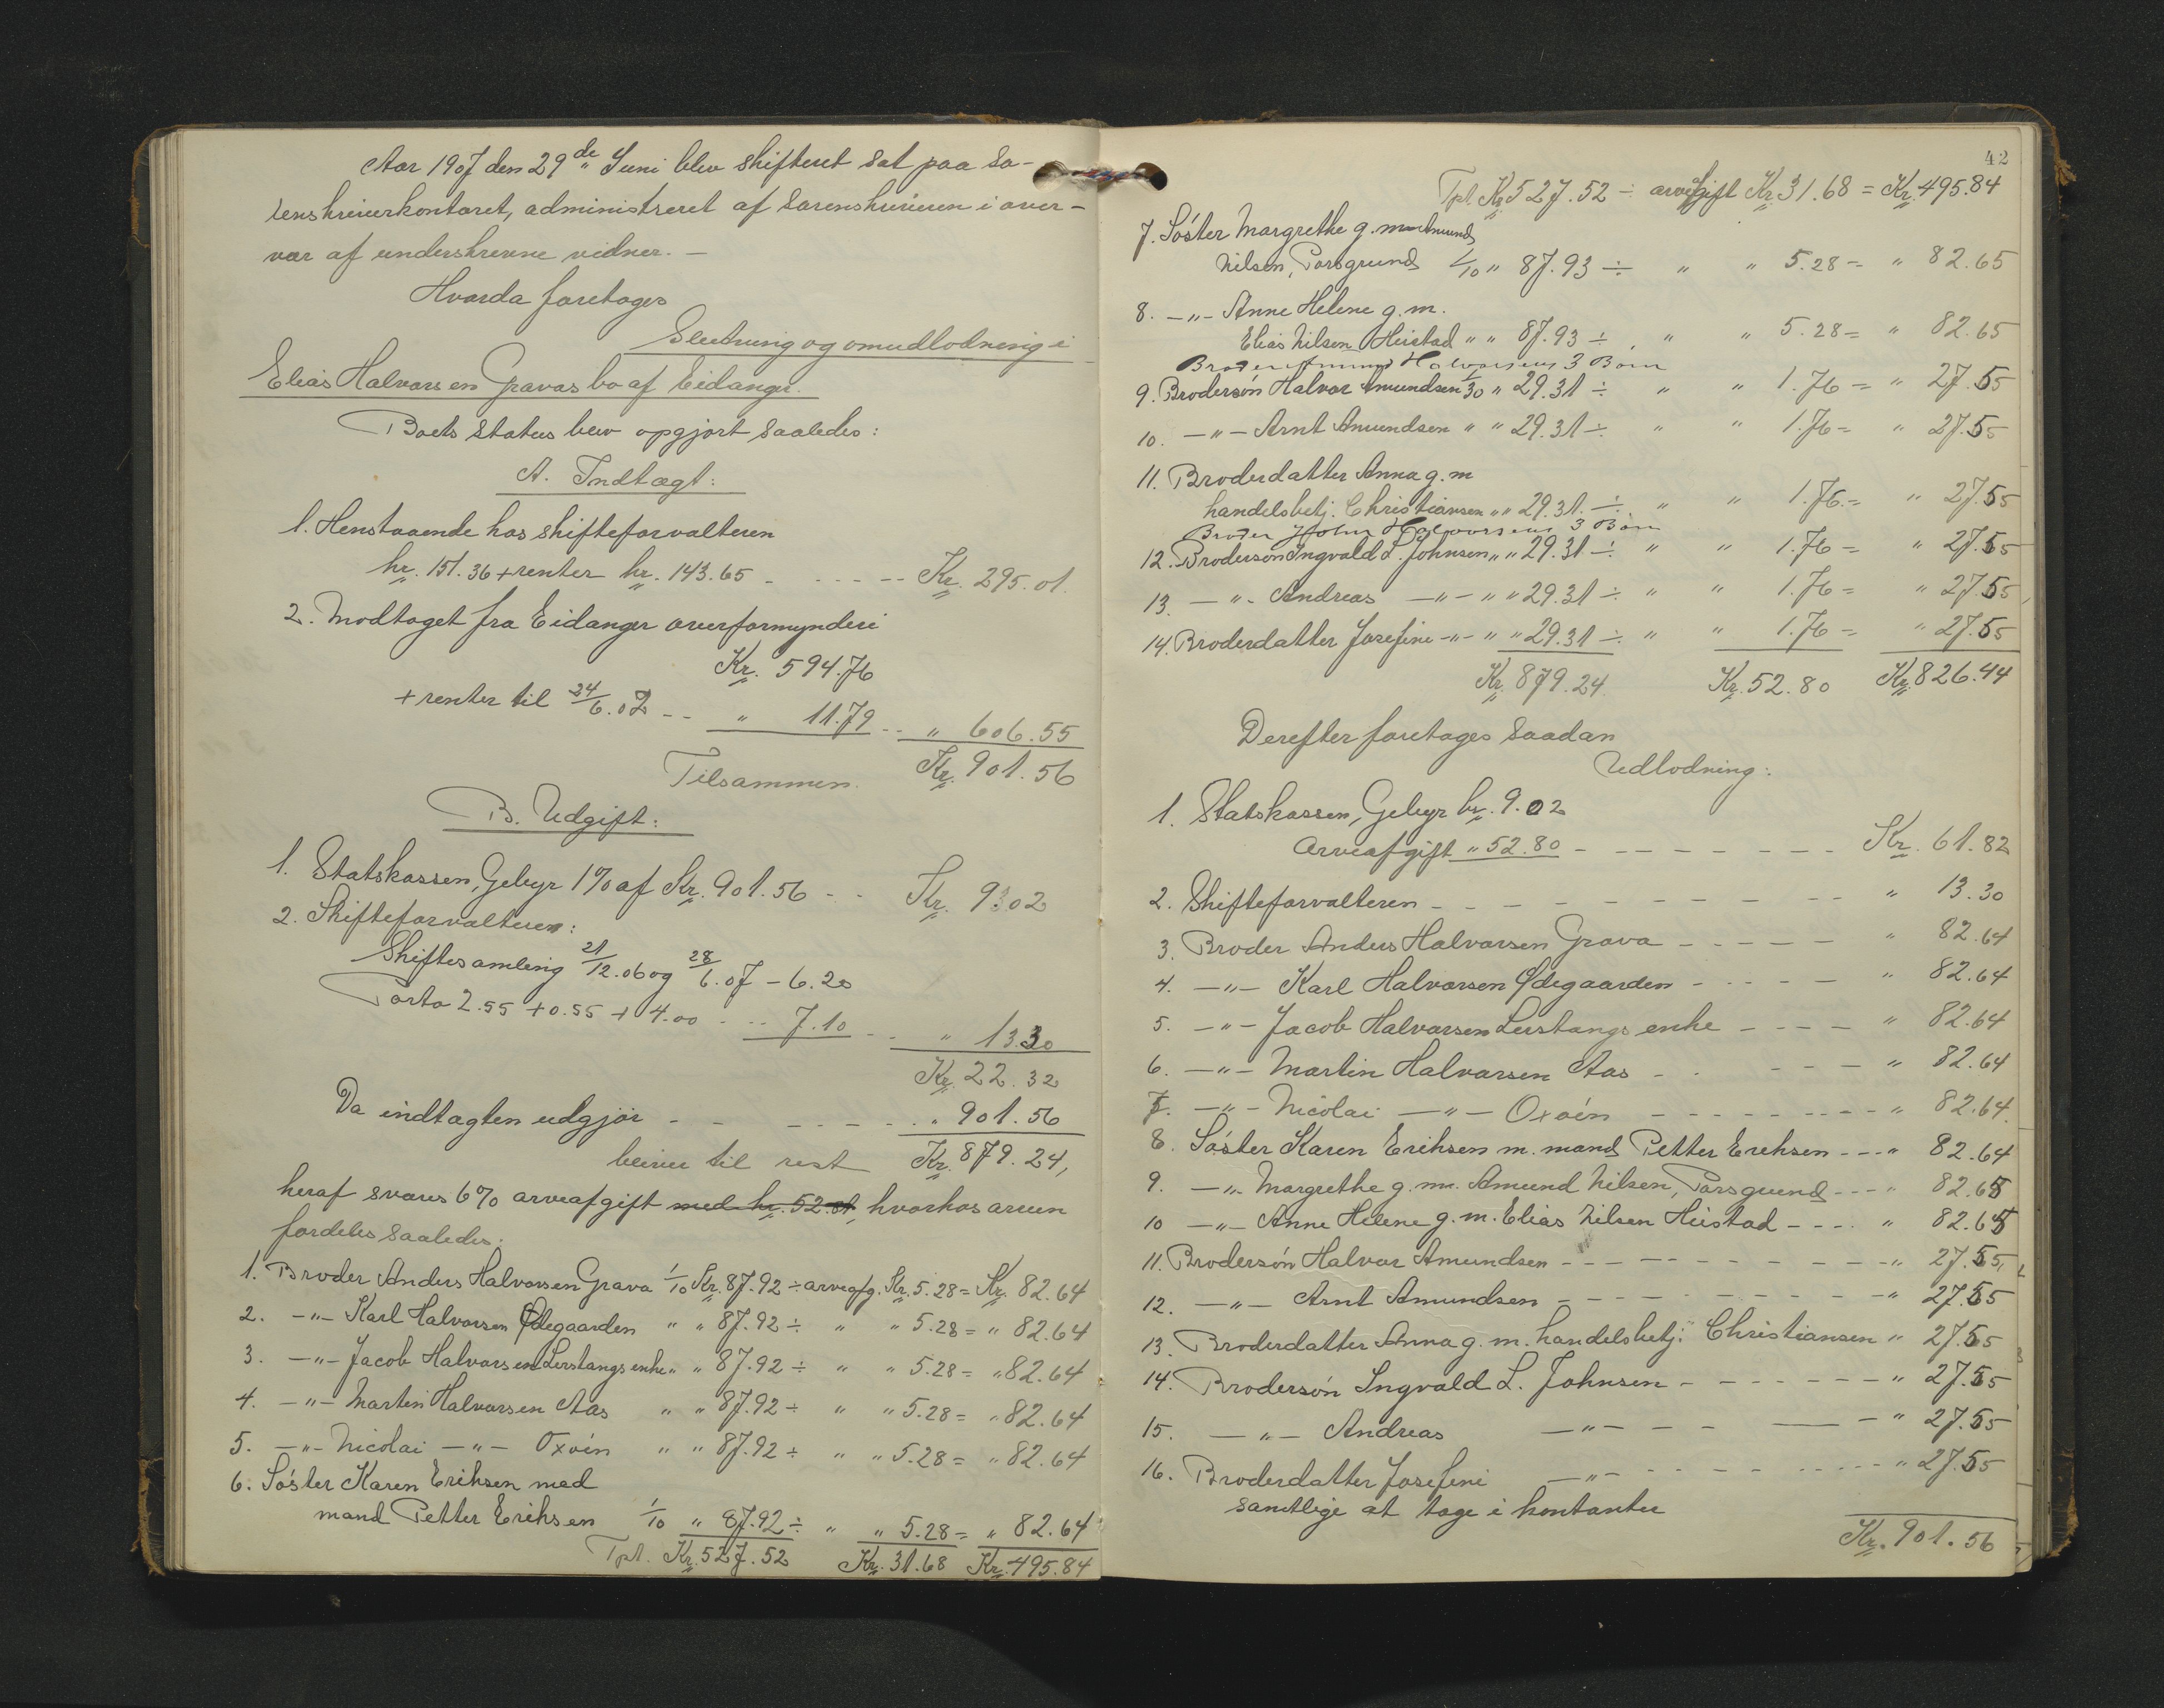 Aar 1907 den 29de Juni blev skifteret sat paa So-
renskriverkontoret, administreret af Sorenskriveren i over-
vær af underskrevne vidner. —
Hvorda foretoges
Slutning og omudlodning i
Elias Halvorsen Gravas bo af Eidanger.
Boets status blev opgjort saaledes:
A. Indtægt:
1. Henstaaende hos skifteforvalteren
kr. 151.36 + renter kr. 143.65 - - - - - Kr. 295.01.
2. Modtaget fra Eidanger overformynderi
Kr. 594.76
+ renter til 24/6.07 - - " 11.79 - - " 606.55
Tilsammen. Kr. 901.56
B. Udgift:
1. Statskassen, Gebyr 1% af Kr. 901.56 - - Kr. 9.02
2. Skifteforvalteren:
Skiftesamling 21/12.06 og 28/6.07 - 6.20
Porto 2.55 + 0.55 + 4.00 - - 7.10 - - " 13.30
Kr. 22.32
Da indtægten udgjør - - - - - - " 901.56
bliver til rest Kr. 879.24,
heraf svares 6% arveafgift med kr. 52. hvorhos arven
fordeles saaledes:
1. Broder Anders Halvorsen Grava 1/10 Kr. 87.92 ÷ arveafg. Kr. 5.28 = Kr. 82.64
2. -"- Karl Halvorsen Ødegaarden " " 87.92 ÷ " " 5.28 = " 82.64
3. -"- Jacob Halvorsen Lerstangs enke " " 87.92 ÷ " " 5.28 = " 82.64
4. -"- Martin Halvorsen Aas " " 87.92 ÷ " " 5.28 = " 82.64
5. -"- Nicolai -"- Oxøen " " 87.92 ÷ " " 5.28 = " 82.64
6. Søster Karen Eriksen med
mand Petter Eriksen 1/10 " 87.92 ÷ " " 5.28 = " 82.64
Tpt. Kr. 527.52 Kr. 31.68 Kr. 495.84
42
Tpt. Kr. 527.52 ÷ arveafgift Kr. 31.68 = Kr. 495.84
7. Søster Margrethe g. m. Amund
Nilsen, Porsgrund 1/10 " 87.93 ÷ " " 5.28 = " 82.65
8. -"- Anne Helene g. m.
Elias Nilsen Heistad " " 87.93 ÷ " " 5.28 = " 82.65
Broder Amund Halvorsens 3 Børn
9. Brodersøn Halvor Amundsen 1/30 " 29.31 ÷ " " 1.76 = " 27.55
10. -"- Arnt Amundsen " " 29.31 ÷ " " 1.76 = " 27.55
11. Broderdatter Anna g. m
handelsbetj. Christiansen " " 29.31. ÷ " " 1.76. = " 27.55
Broder John Halvorsens 3 Børn
12. Brodersøn Ingvald L. Johnsen " " 29.31 ÷ " " 1.76 = " 27.55
13. -"- Andreas -"- " " 29.31 ÷ " " 1.76 = " 27.55
14. Broderdatter Josefine -"- " " 29.31 ÷ " " 1.76 = " 27.55
Kr. 879.24. Kr. 52.80 Kr. 826.44
Derefter foretoges saadan
Udlodning:
1. Statskassen, Gebyr kr. 9.02
Arveafgift " 52.80 - - - - - - - - Kr. 61.82
2. Skifteforvalteren - - - - - - - - - - " 13.30
3. Broder Anders Halvorsen Grava - - - - - " 82.64
4. -"- Karl Halvorsen Ødegaarden - - - - - " 82.64
5. -"- Jacob Halvorsen Lerstangs enke - - - - " 82.64
6. -"- Martin Halvorsen Aas - - - - - " 82.64
7. -"- Nicolai -"- Oxøen - - - - - - - - " 82.64.
8. Søster Karen Eriksen m. mand Petter Eriksen - - - " 82.64
9. -"- Margrethe g. m. Amund Nilsen, Porsgrund - - - " 82.65
10 -"- Anne Helene g. m. Elias Nilsen Heistad - - - - " 82.65
11. Brodersøn Halvor Amundsen - - - - - - - - - - " 27.55,
12. -"- Arnt Amundsen - - - - - - - - - - " 27.55
13. Broderdatter Anna g. m. handelsbetj. Christiansen " 27.55
14. Brodersøn Ingvald L. Johnsen - - - - - - - " 27.55
15. -"- Andreas -"- - - - " 27.55
16. Broderdatter Josefine -"- - - - - - - " 27.55
samtlige at tage i kontanter
Kr. 901.56